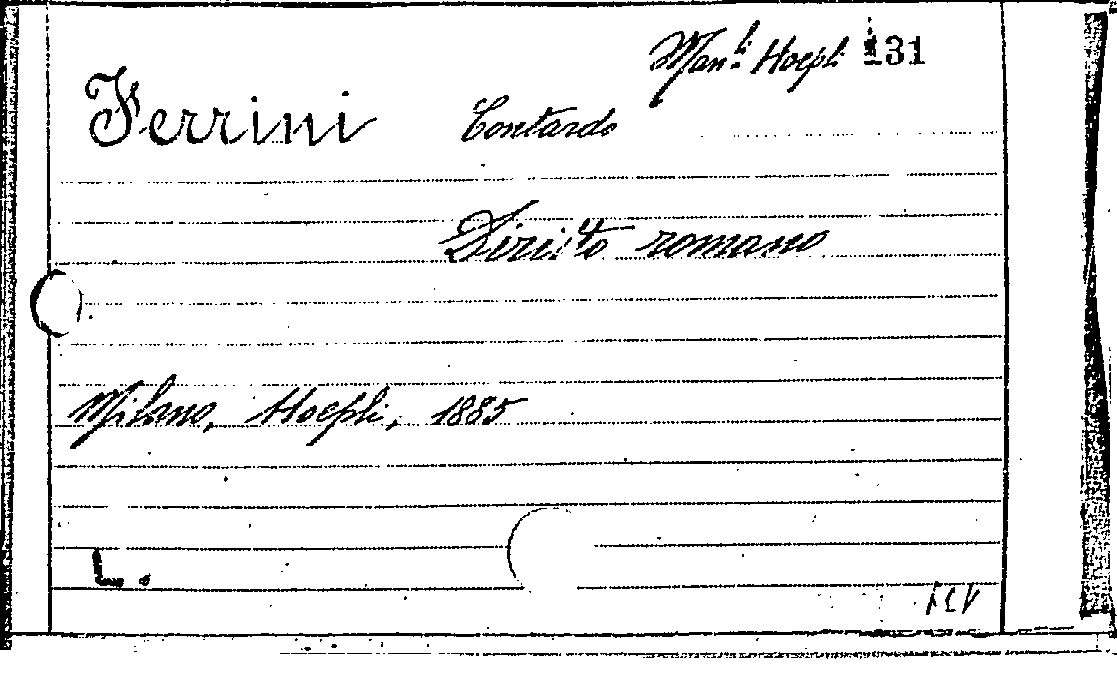 Man.li Hoepli 131
Ferrini Contardo
Diritto romano
Milano, Hoepli, 1885
L.